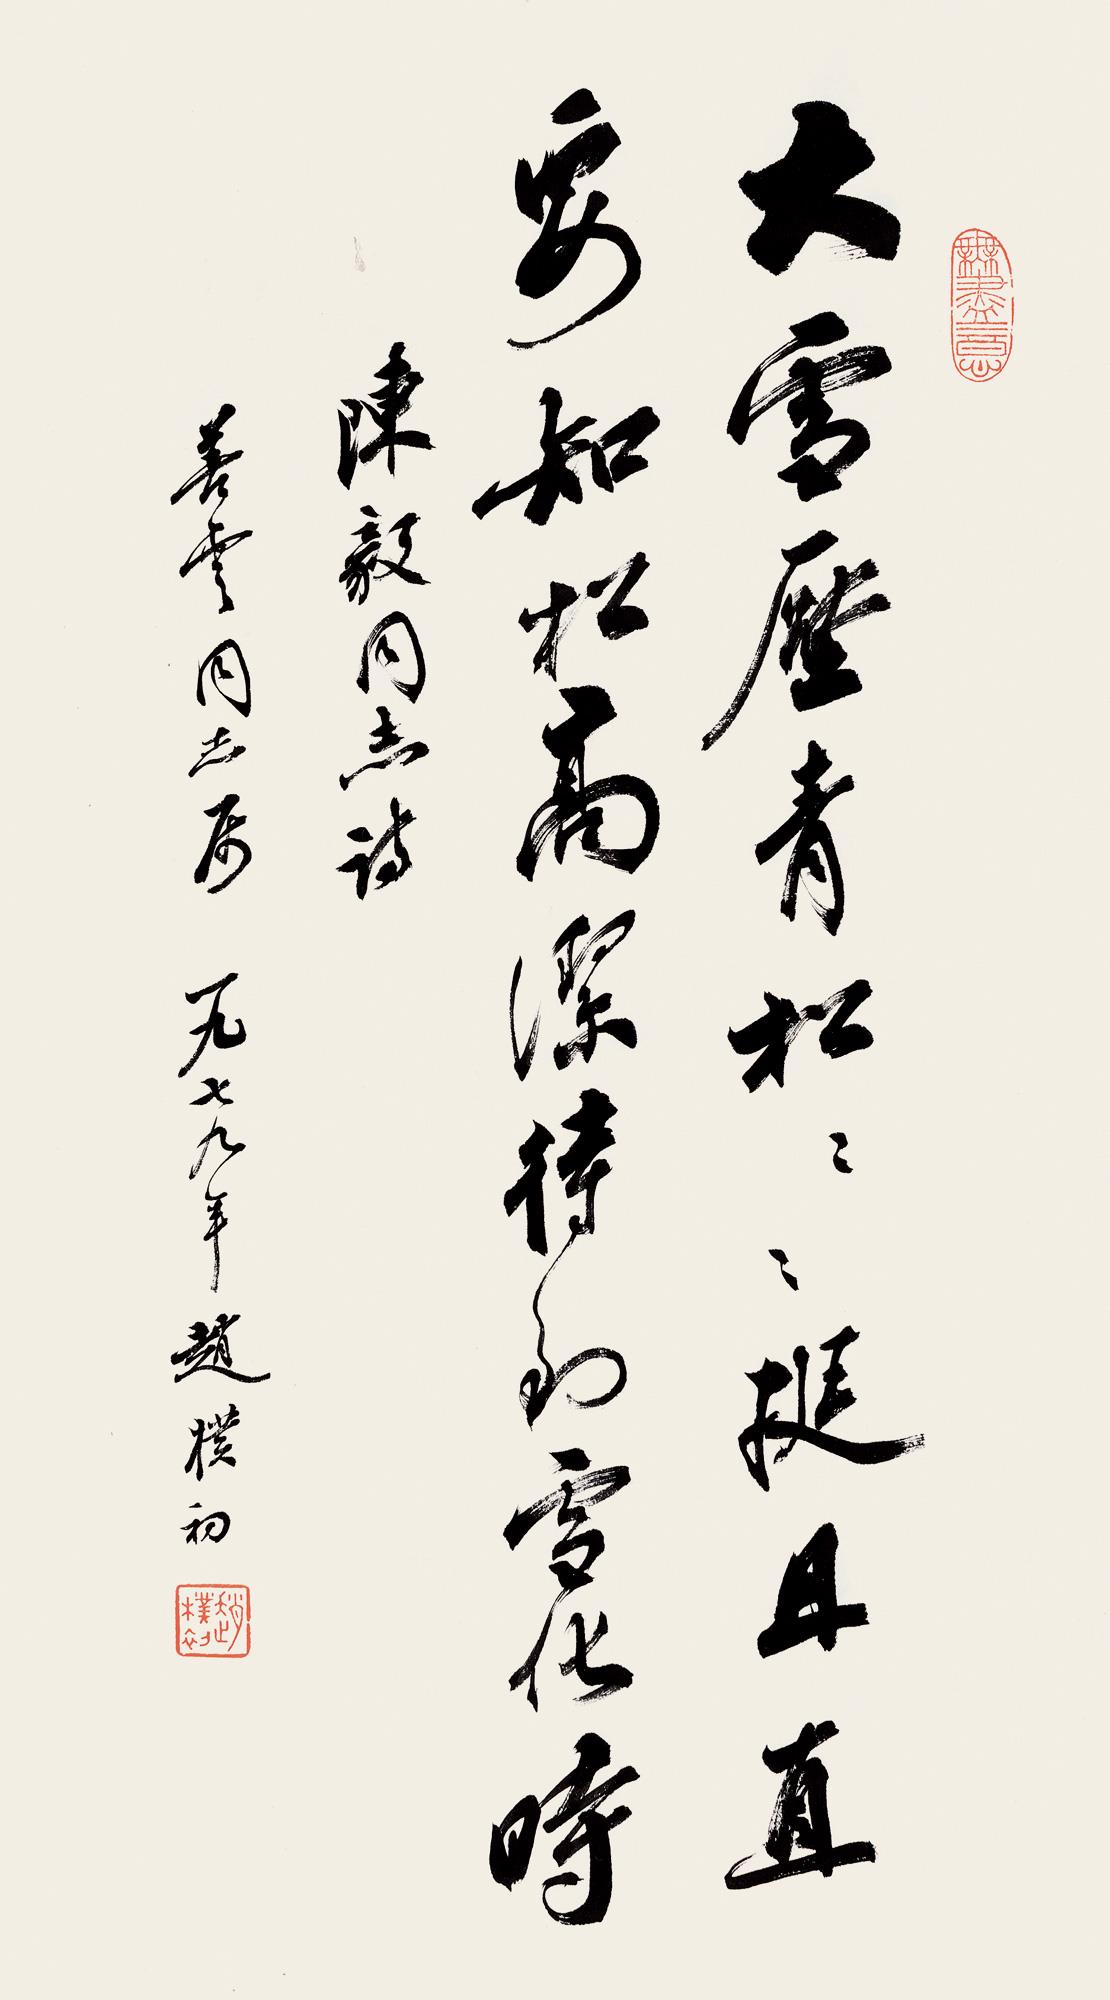 大雪壓青松〻〻挺且直
要知松高潔待到雪化時
陳毅同志詩
善雲同志屬 一九七九年趙樸初
無盡意
趙樸初